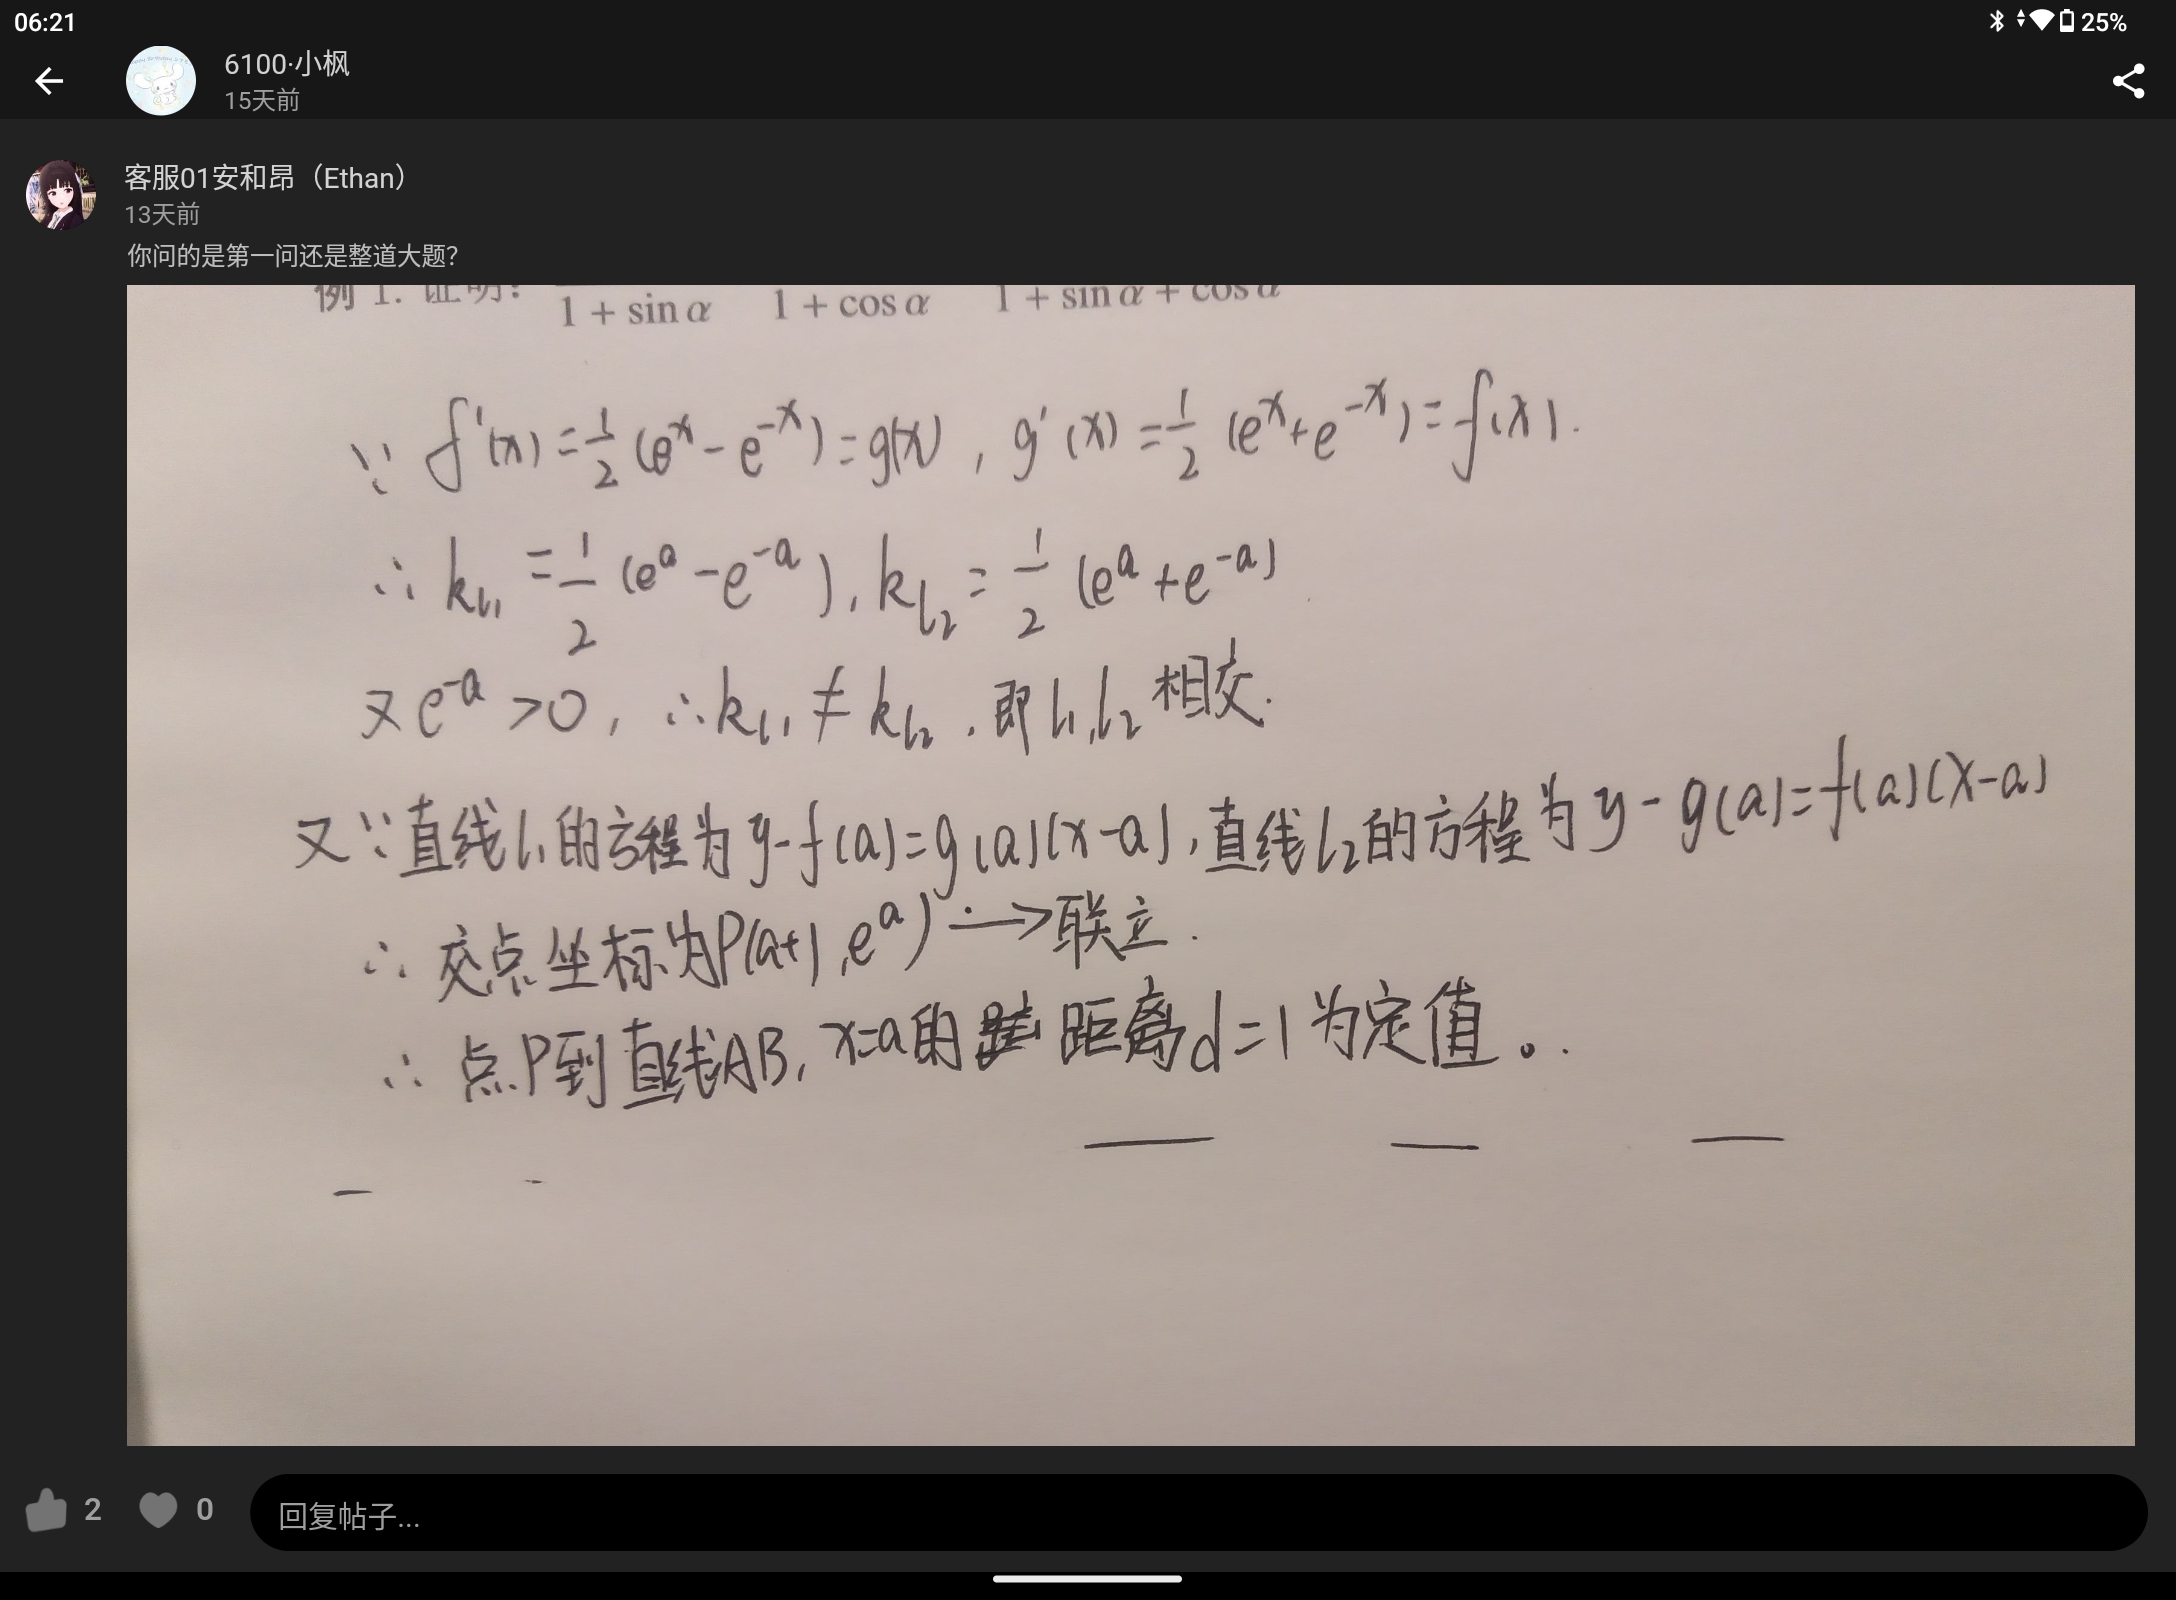 06:21
25%
6100·小枫
15天前
客服01安和昂（Ethan）
13天前
你问的是第一问还是整道大题？
例 1. 证明： 1 + sin α 1 + cos α 1 + sin α + cos α
∵ f'(x) = 1/2 (e^x - e^-x) = g(x) , g'(x) = 1/2 (e^x + e^-x) = f(x).
∴ k_l1 = 1/2 (e^a - e^-a), k_l2 = 1/2 (e^a + e^-a)
又 e^-a > 0, ∴ k_l1 ≠ k_l2 , 即 l1, l2 相交.
又∵直线 l1 的方程为 y - f(a) = g(a)(x-a), 直线 l2 的方程为 y - g(a) = f(a)(x-a)
∴ 交点坐标为P(a+1, e^a) → 联立.
∴ 点P到直线AB, x=a的 距离d=1为定值。
2
0
回复帖子...